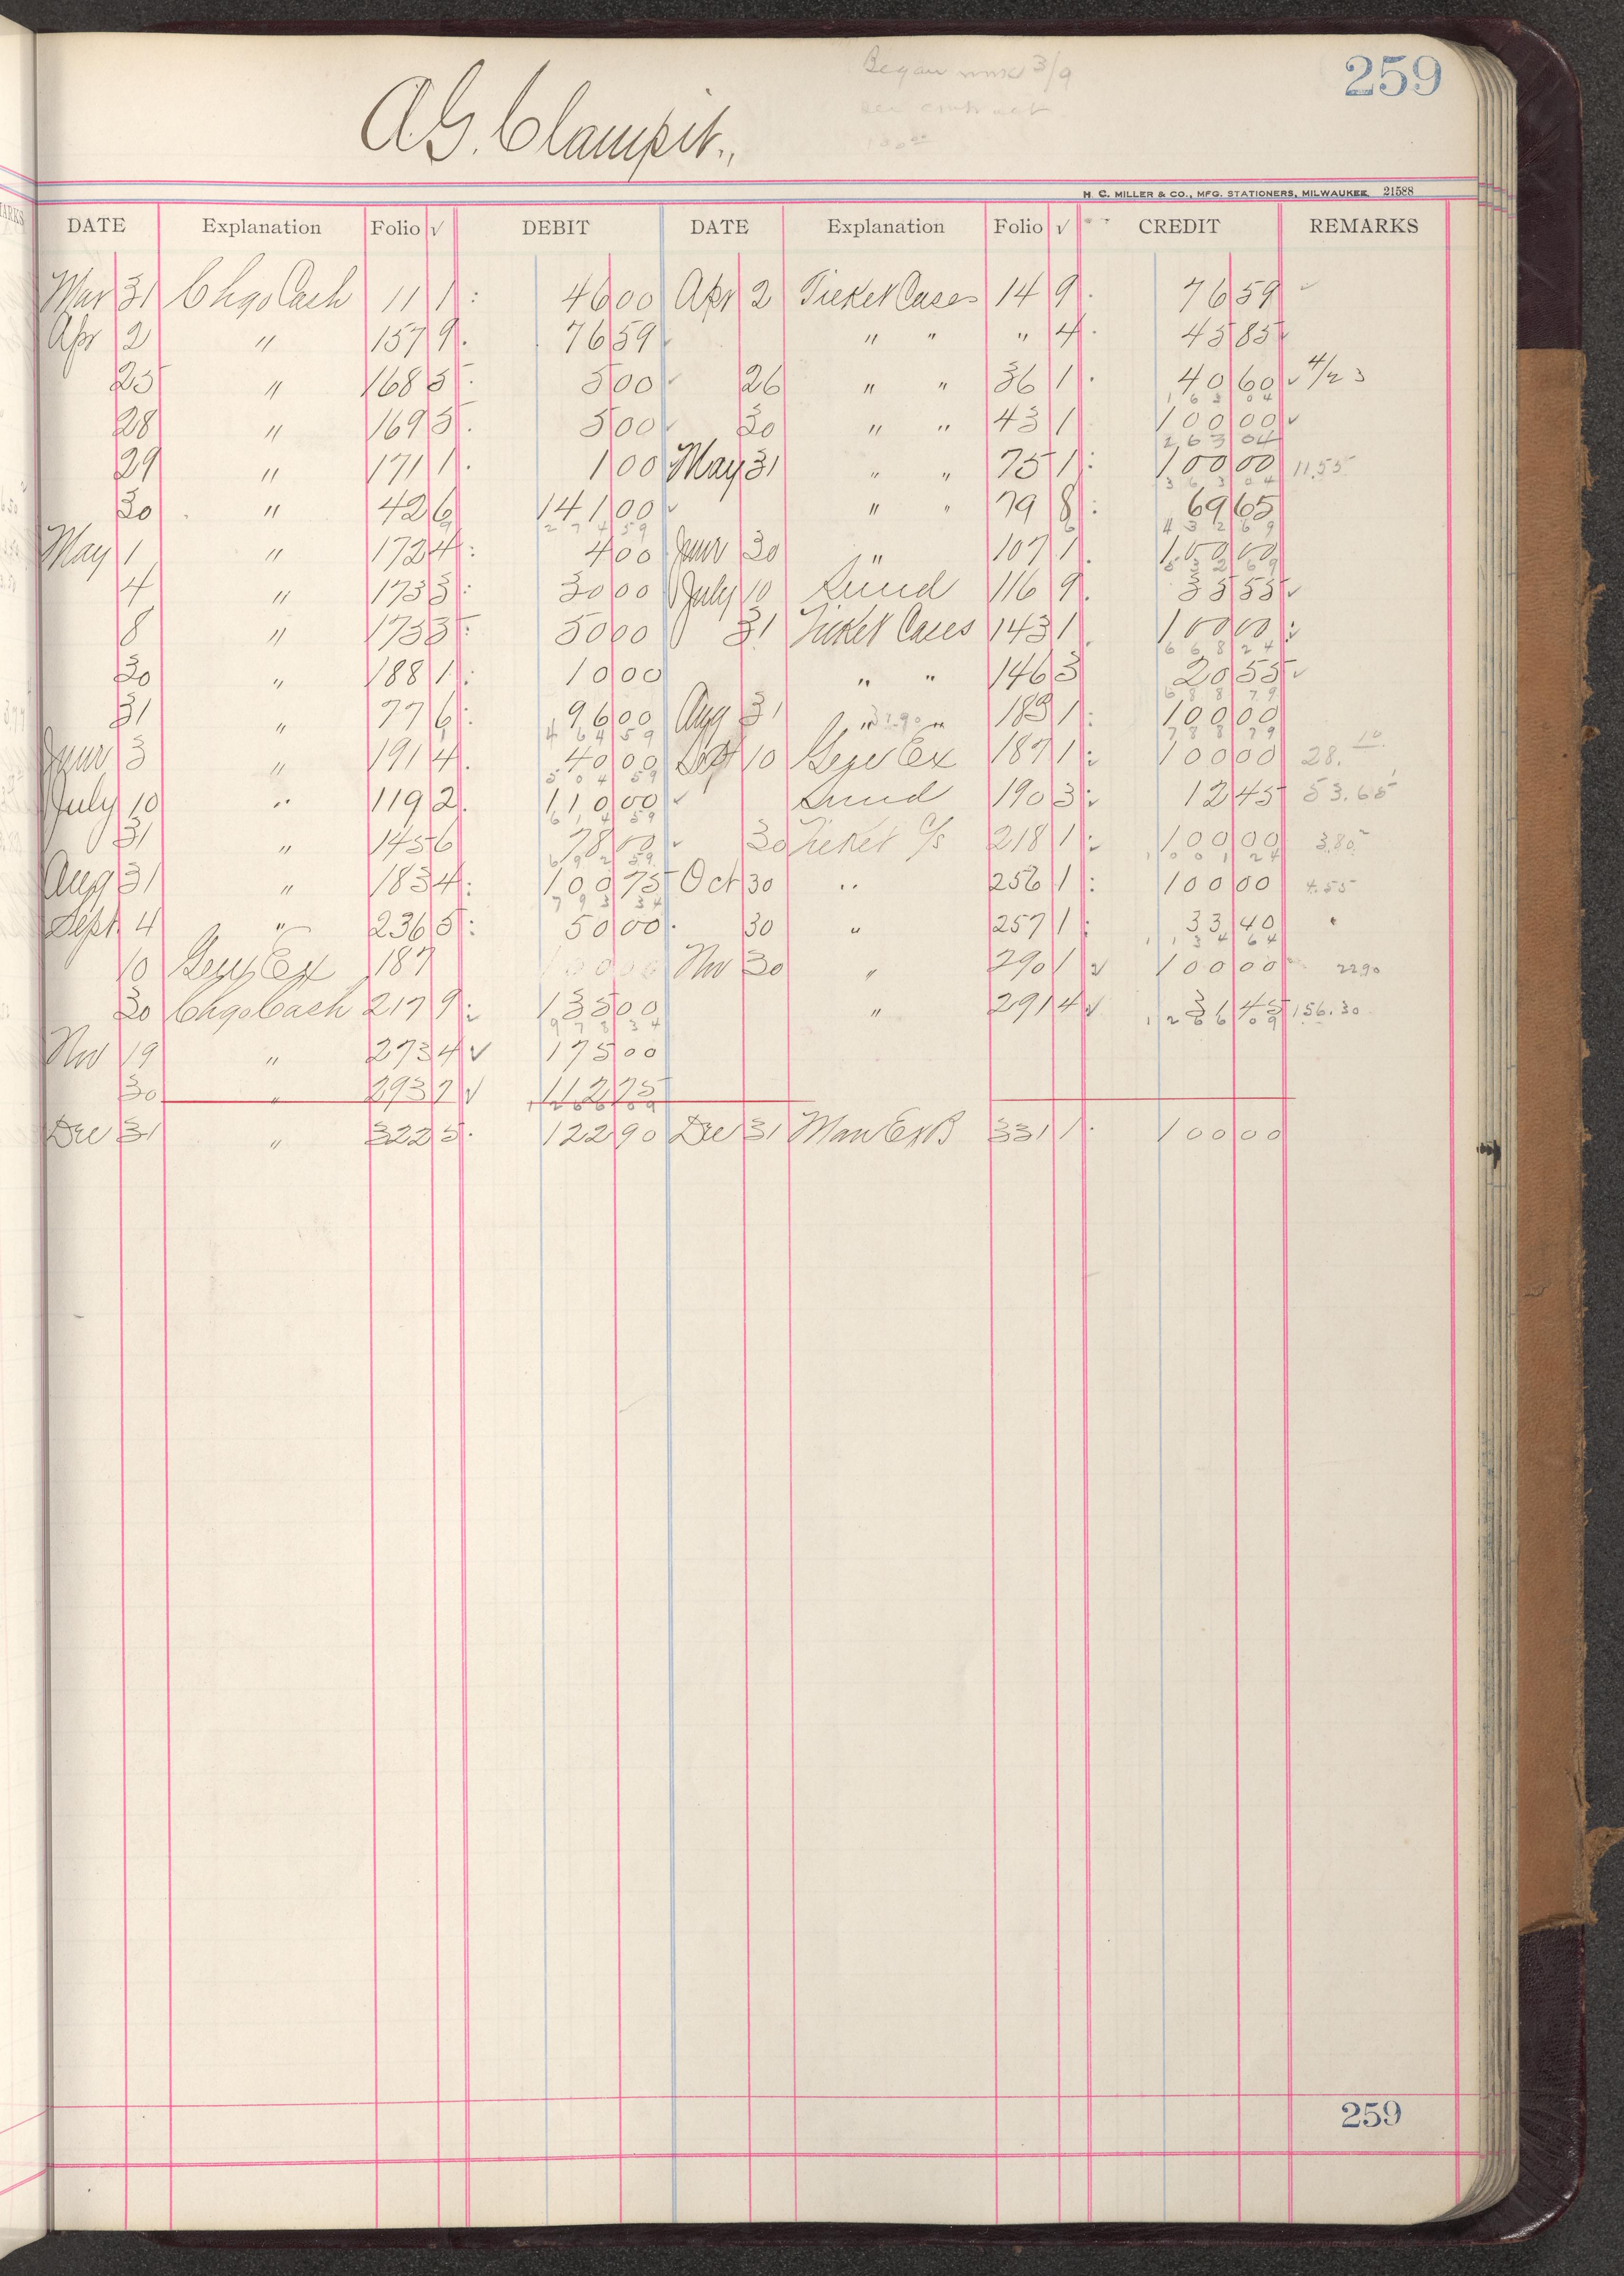 259
Began work 3/9
see contract
A.G. Clampit.,
H. C. MILLER & CO., MFG. STATIONERS, MILWAUKEE 21588
DATE Explanation Folio √ DEBIT DATE Explanation Folio √ CREDIT REMARKS
Mar 31 Chgo Cash 11 1 46 00 Apr 2 Ticket Cases 14 9 76 59 ✓
Apr 2 " 157 9 76 59 " " " 4 45 85
25 " 168 5 5 00 ✓ 26 " " 36 1 40 60 ✓ 4/23
163 04
28 " 169 5 5 00 ✓ 30 " " 43 1 100 00 ✓
263 04
29 " 171 1 1 00 May 31 " " 75 1 100 00 11.55
363 04
30 " 42 6 141 00 ✓ " " 79 8 69 65
274 59 432 69
May 1 " 172 4 4 00 June 30 " 107 1 100 00
532 69
4 " 173 3 30 00 July 10 Sund 116 9 35 55 ✓
8 " 175 5 50 00 31 Ticket Cases 143 1 100 00
668 24
30 " 188 1 10 00 " " 146 3 20 55 ✓
688 79
31 " 77 6 96 00 Aug 31 " " 183 1 100 00
464 59 788 79
June 3 " 191 4 40 00 Sept 10 Geyser Ex 187 1 100 00 28.10
504 59
July 10 " 119 2 110 00 ✓ Sund 190 3 12 45 53.65
614 59
31 " 145 6 78 00 ✓ 30 Ticket C/s 218 1 100 00 3.80
692 59 1001 24
Aug 31 " 183 4 100 75 Oct 30 " 256 1 100 00 4.55
793 34
Sept 4 " 236 5 50 00 30 " 257 1 33 40
1134 64
10 Geyser Ex 187 100 00 Nov 30 " 290 1 ✓ 100 00 22.90
30 Chgo Cash 217 9 135 00 " 291 4 ✓ 31 45 156.30
978 34 1266 09
Nov 19 " 273 4 ✓ 175 00
30 " 293 7 ✓ 112 75
1266 09
Dec 31 " 322 5 122 90 Dec 31 Man Ex B 331 1 100 00
259